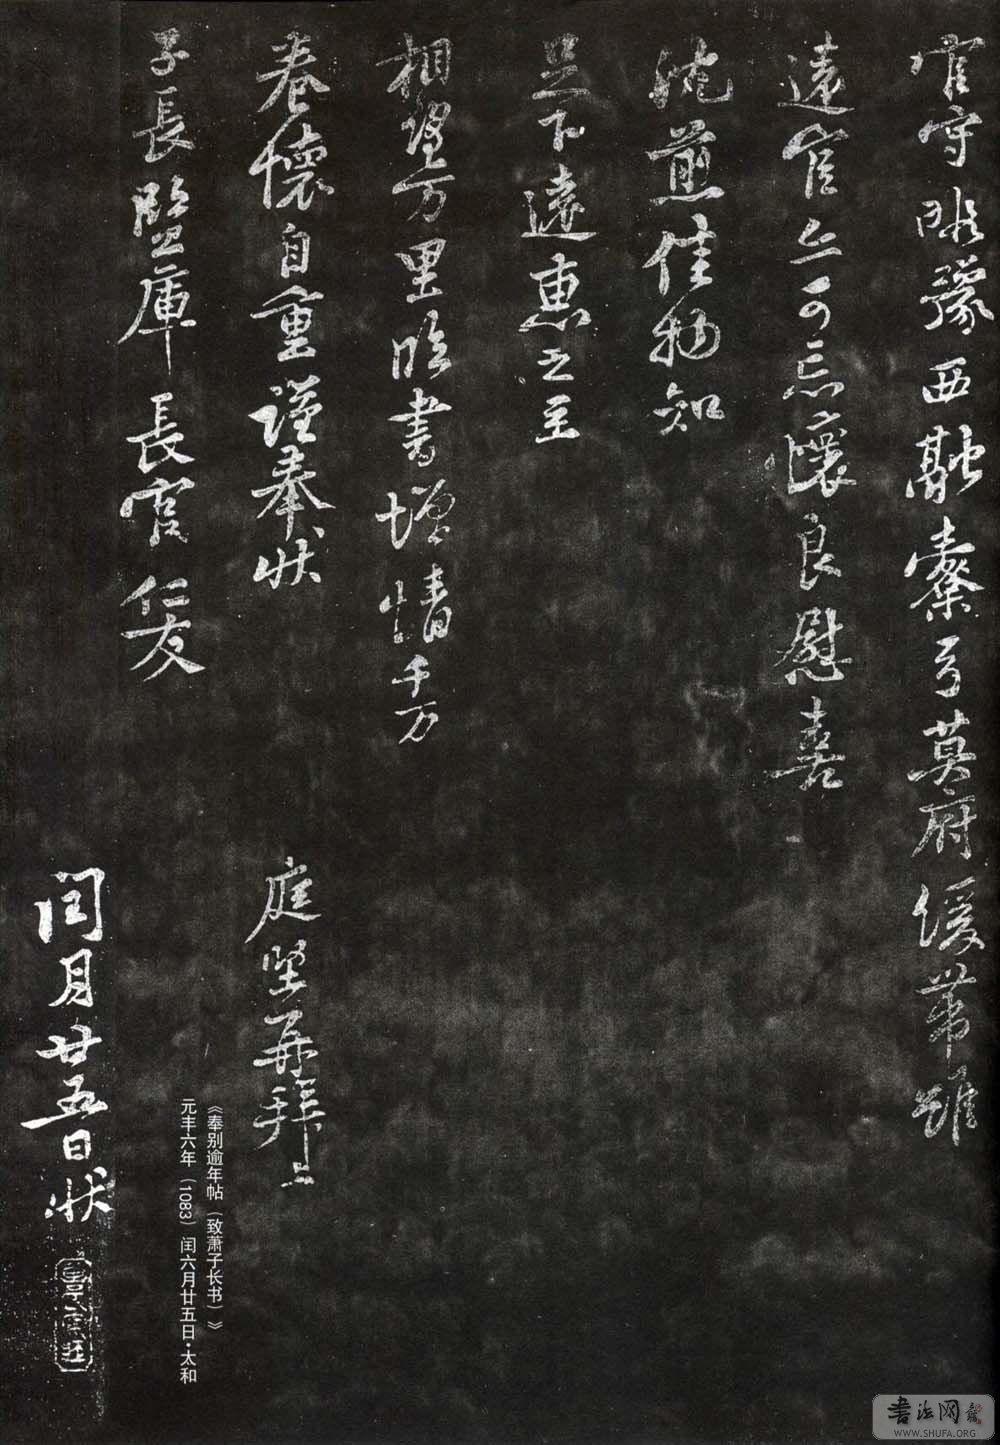 官守暇豫西融橐弓莫府缓帶雖
遠官亦可忘懷良慰喜
沈煎佳物知
足下遠惠之主
相望万里臨書增情千万
眷懷自重謹奉狀
庭堅再拜上
子長監庫長官仁友
閏月廿五日狀
《奉别逾年帖（致萧子长书）》
元丰六年（1083）闰六月廿五日·太和
書法网
WWW.SHUFA.ORG